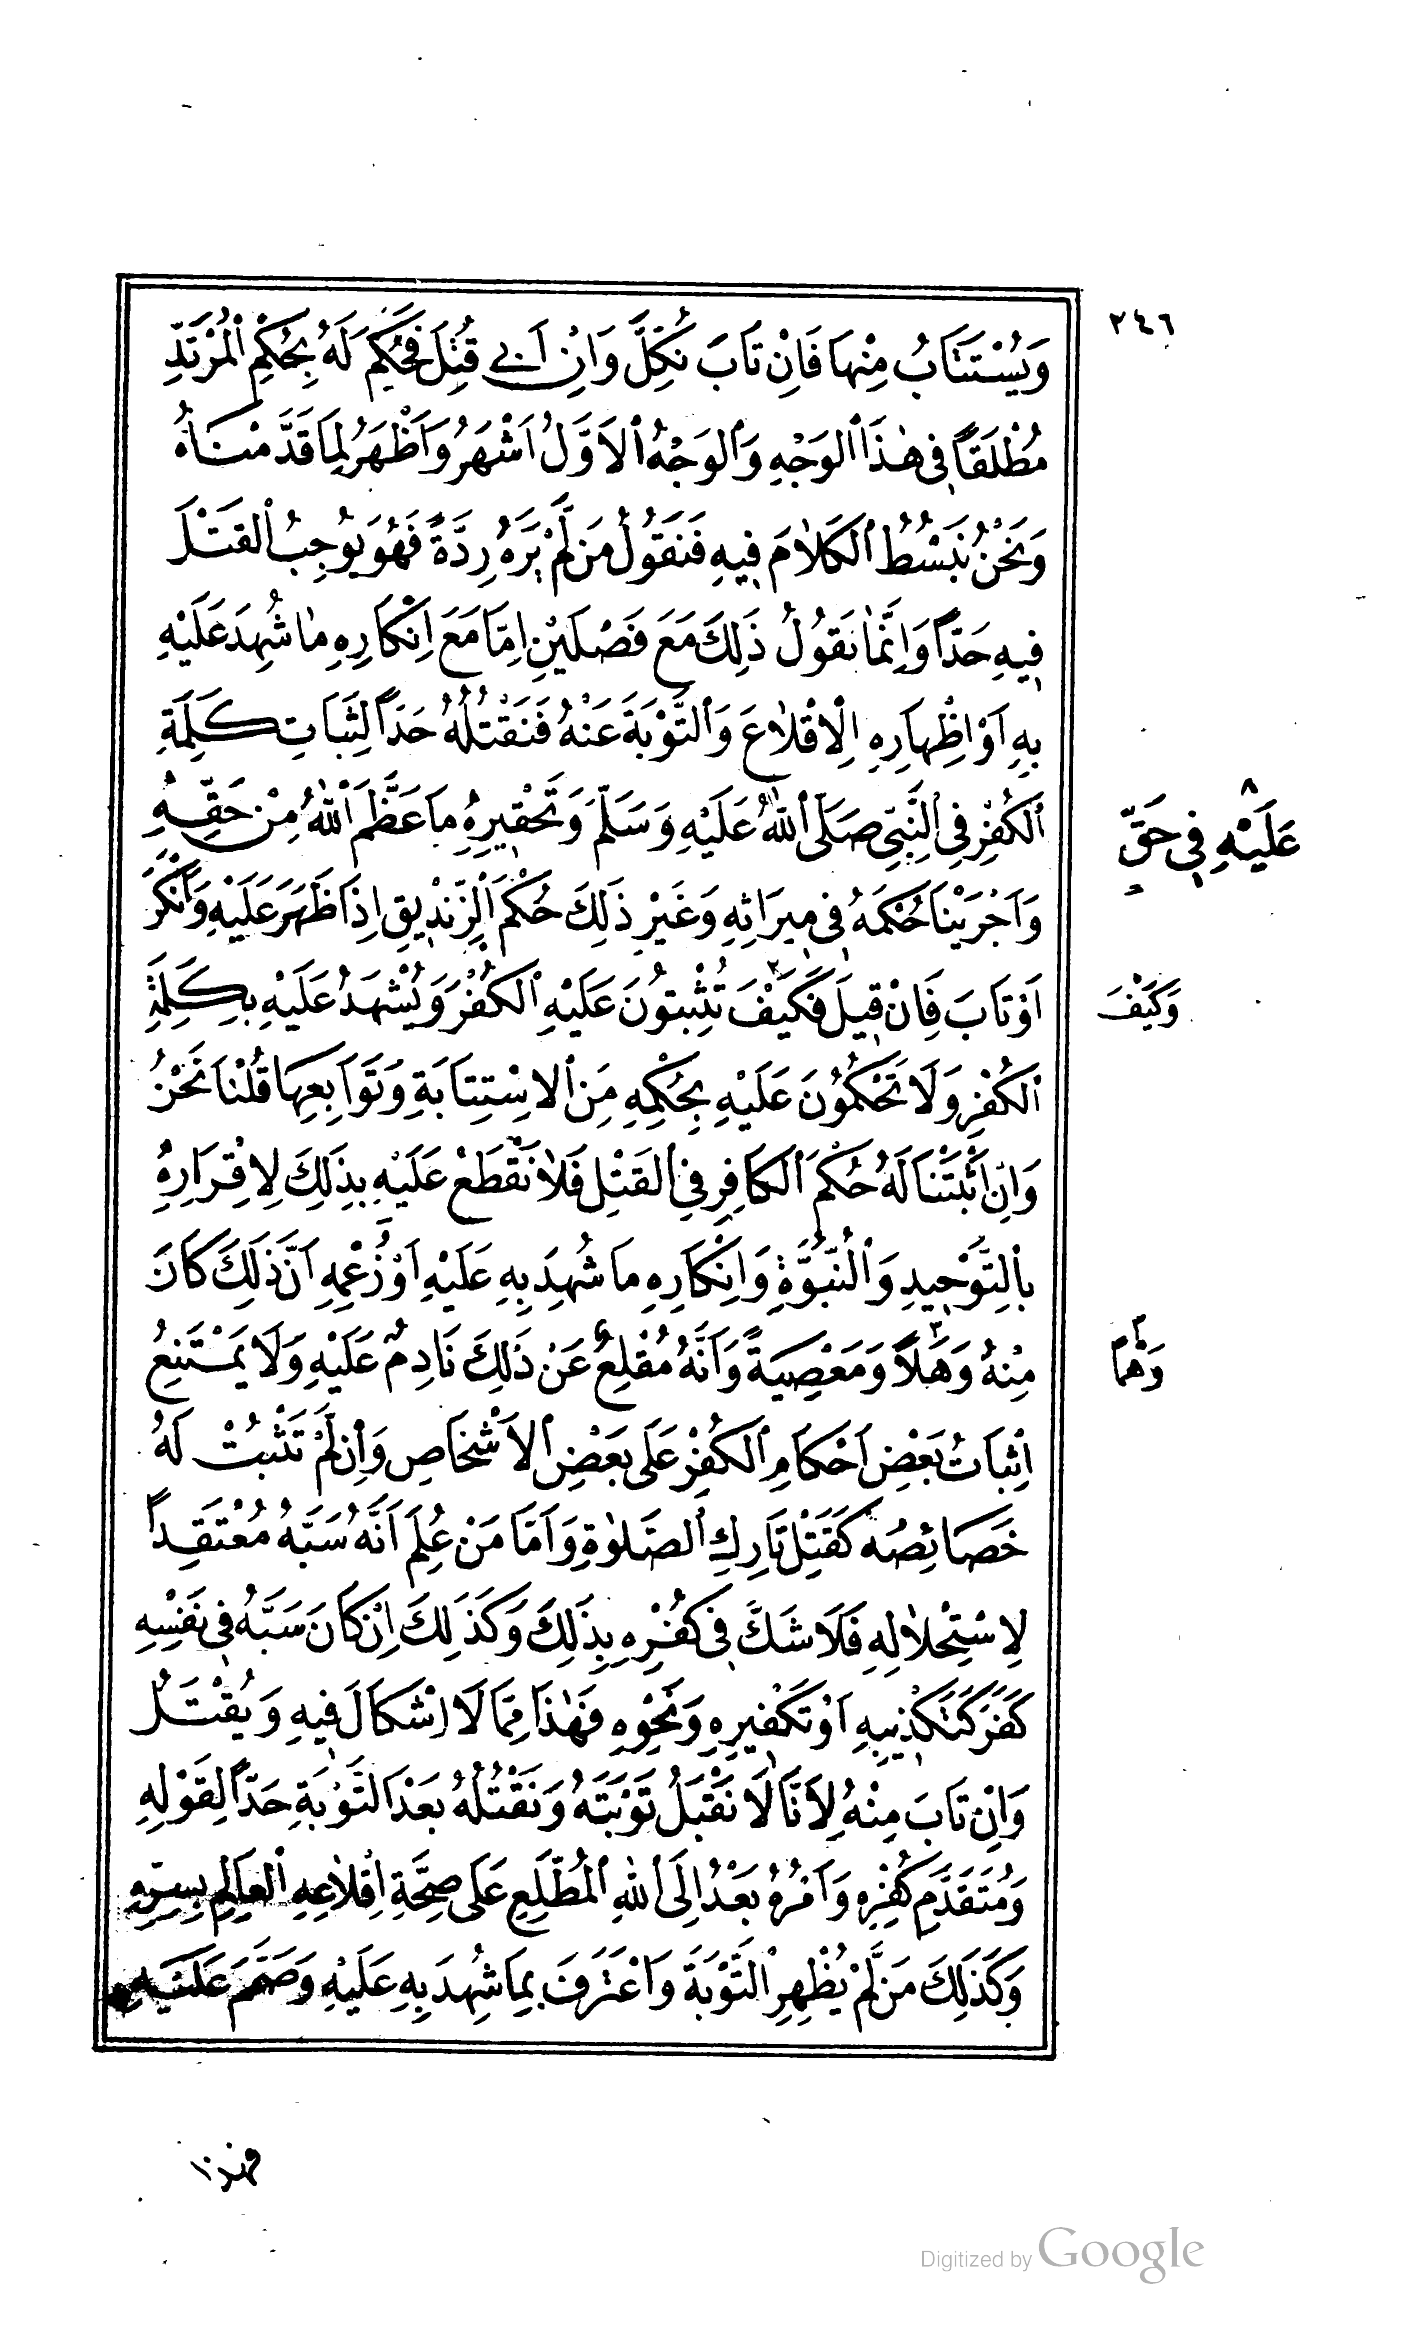 ٢٤٦
وَيُسْتَتَابُ مِنْهَا فَاِنْ تَابَ نُكِّلَ وَاِنْ اَبٰى قُتِلَ فَحُكِمَ لَهُ بِحُكْمِ الْمُرْتَدِّ
مُطْلَقًا فِى هٰذَا الْوَجْهِ وَالْوَجْهُ الْاَوَّلُ اَشْهَرُ وَاَظْهَرُ لِمَا قَدَّمْنَاهُ
وَنَحْنُ نَبْسُطُ الْكَلَامَ فِيهِ فَنَقُولُ مَنْ لَمْ يَرَهُ رِدَّةً فَهُوَ يُوجِبُ الْقَتْلَ
فِيهِ حَدًّا وَاِنَّمَا نَقُولُ ذَلِكَ مَعَ فَصْلَيْنِ اِمَّا مَعَ اِنْكَارِهِ مَا شُهِدَ عَلَيْهِ
بِهِ اَوْ اِظْهَارِهِ الْاِقْلَاعَ وَالتَّوْبَةَ عَنْهُ فَنَقْتُلُهُ حَدًّا لِثَبَاتِ كَلِمَةِ
الْكُفْرِ فِى النَّبِىِّ صَلَّى اللّٰهُ عَلَيْهِ وَسَلَّمَ وَتَحْقِيرِهِ مَا عَظَّمَ اللّٰهُ مِنْ حَقِّهِ
٨
عَلَيْهِ فِى حَقِّ
وَاَجْرَيْنَا حُكْمَهُ فِى مِيرَاثِهِ وَغَيْرِ ذَلِكَ حُكْمَ الزِّنْدِيقِ اِذَا ظَهَرَ عَلَيْهِ وَاَنْكَرَ
اَوْ تَابَ فَاِنْ قِيلَ فَكَيْفَ تُثْبِتُونَ عَلَيْهِ الْكُفْرَ وَيُشْهَدُ عَلَيْهِ بِكَلِمَةِ
وَكَيْفَ
الْكُفْرِ وَلَا تَحْكُمُونَ عَلَيْهِ بِحُكْمِهِ مِنَ الْاِسْتِتَابَةِ وَتَوَابِعِهَا قُلْنَا نَحْنُ
وَاِنْ اَثْبَتْنَا لَهُ حُكْمَ الْكَافِرِ فِى الْقَتْلِ فَلَا نَقْطَعُ عَلَيْهِ بِذَلِكَ لِاِقْرَارِهِ
بِالتَّوْحِيدِ وَالنُّبُوَّةِ وَاِنْكَارِهِ مَا شُهِدَ بِهِ عَلَيْهِ اَوْ زُعْمِهِ اَنَّ ذَلِكَ كَانَ
مِنْهُ وَهَلًا وَمَعْصِيَةً وَاَنَّهُ مُقْلِعٌ عَنْ ذَلِكَ نَادِمٌ عَلَيْهِ وَلَا يَمْتَنِعُ
٢
وَهْمًا
اِثْبَاتُ بَعْضِ اَحْكَامِ الْكُفْرِ عَلَى بَعْضِ الْاَشْخَاصِ وَاِنْ لَمْ تَثْبُتْ لَهُ
خَصَائِصُهُ كَقَتْلِ تَارِكِ الصَّلٰوةِ وَاَمَّا مَنْ عُلِمَ اَنَّهُ سَبَّهُ مُعْتَقِدًا
لِاسْتِحْلَالِهِ فَلَا شَكَّ فِى كُفْرِهِ بِذَلِكَ وَكَذَلِكَ اِنْ كَانَ سَبُّهُ فِى نَفْسِهِ
كَفَرَ كَتَكْذِيبِهِ اَوْ تَكْفِيرِهِ وَنَحْوِهِ فَهٰذَا مِمَّا لَا اِشْكَالَ فِيهِ وَيُقْتَلُ
وَاِنْ تَابَ مِنْهُ لِاَنَّا لَا نَقْبَلُ تَوْبَتَهُ وَنَقْتُلُهُ بَعْدَ التَّوْبَةِ حَدًّا لِقَوْلِهِ
وَمُتَقَدَّمِ كُفْرِهِ وَاَمْرُهُ بَعْدُ اِلَى اللّٰهِ الْمُطَّلِعِ عَلَى صِحَّةِ اِقْلَاعِهِ الْعَالِمِ بِسِرِّهِ
وَكَذَلِكَ مَنْ لَمْ يُظْهِرِ التَّوْبَةَ وَاعْتَرَفَ بِمَا شُهِدَ بِهِ عَلَيْهِ وَصَمَّمَ عَلَيْهِ
فهذا
Digitized by Google